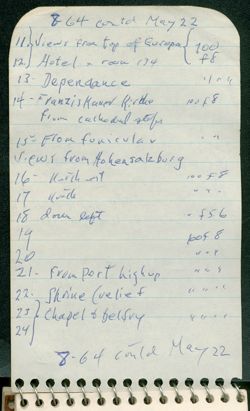 8-64 could May 22
11 Views from top of Europa 100
12 Hotel - room 134 f8
13 - Dependance " " "
14 - Franziskaner Kirche 100 f8
from cathedral steps
15 - From funicular " "
Views from Hohensalzburg
16 - North 100 f8
17 North " "
18 down left - f56
19 f8
20 " "
21 - From port high up " " "
22 - Shrine (relief " " "
23 Chapel & belfry " " "
24
8-64 could May 22